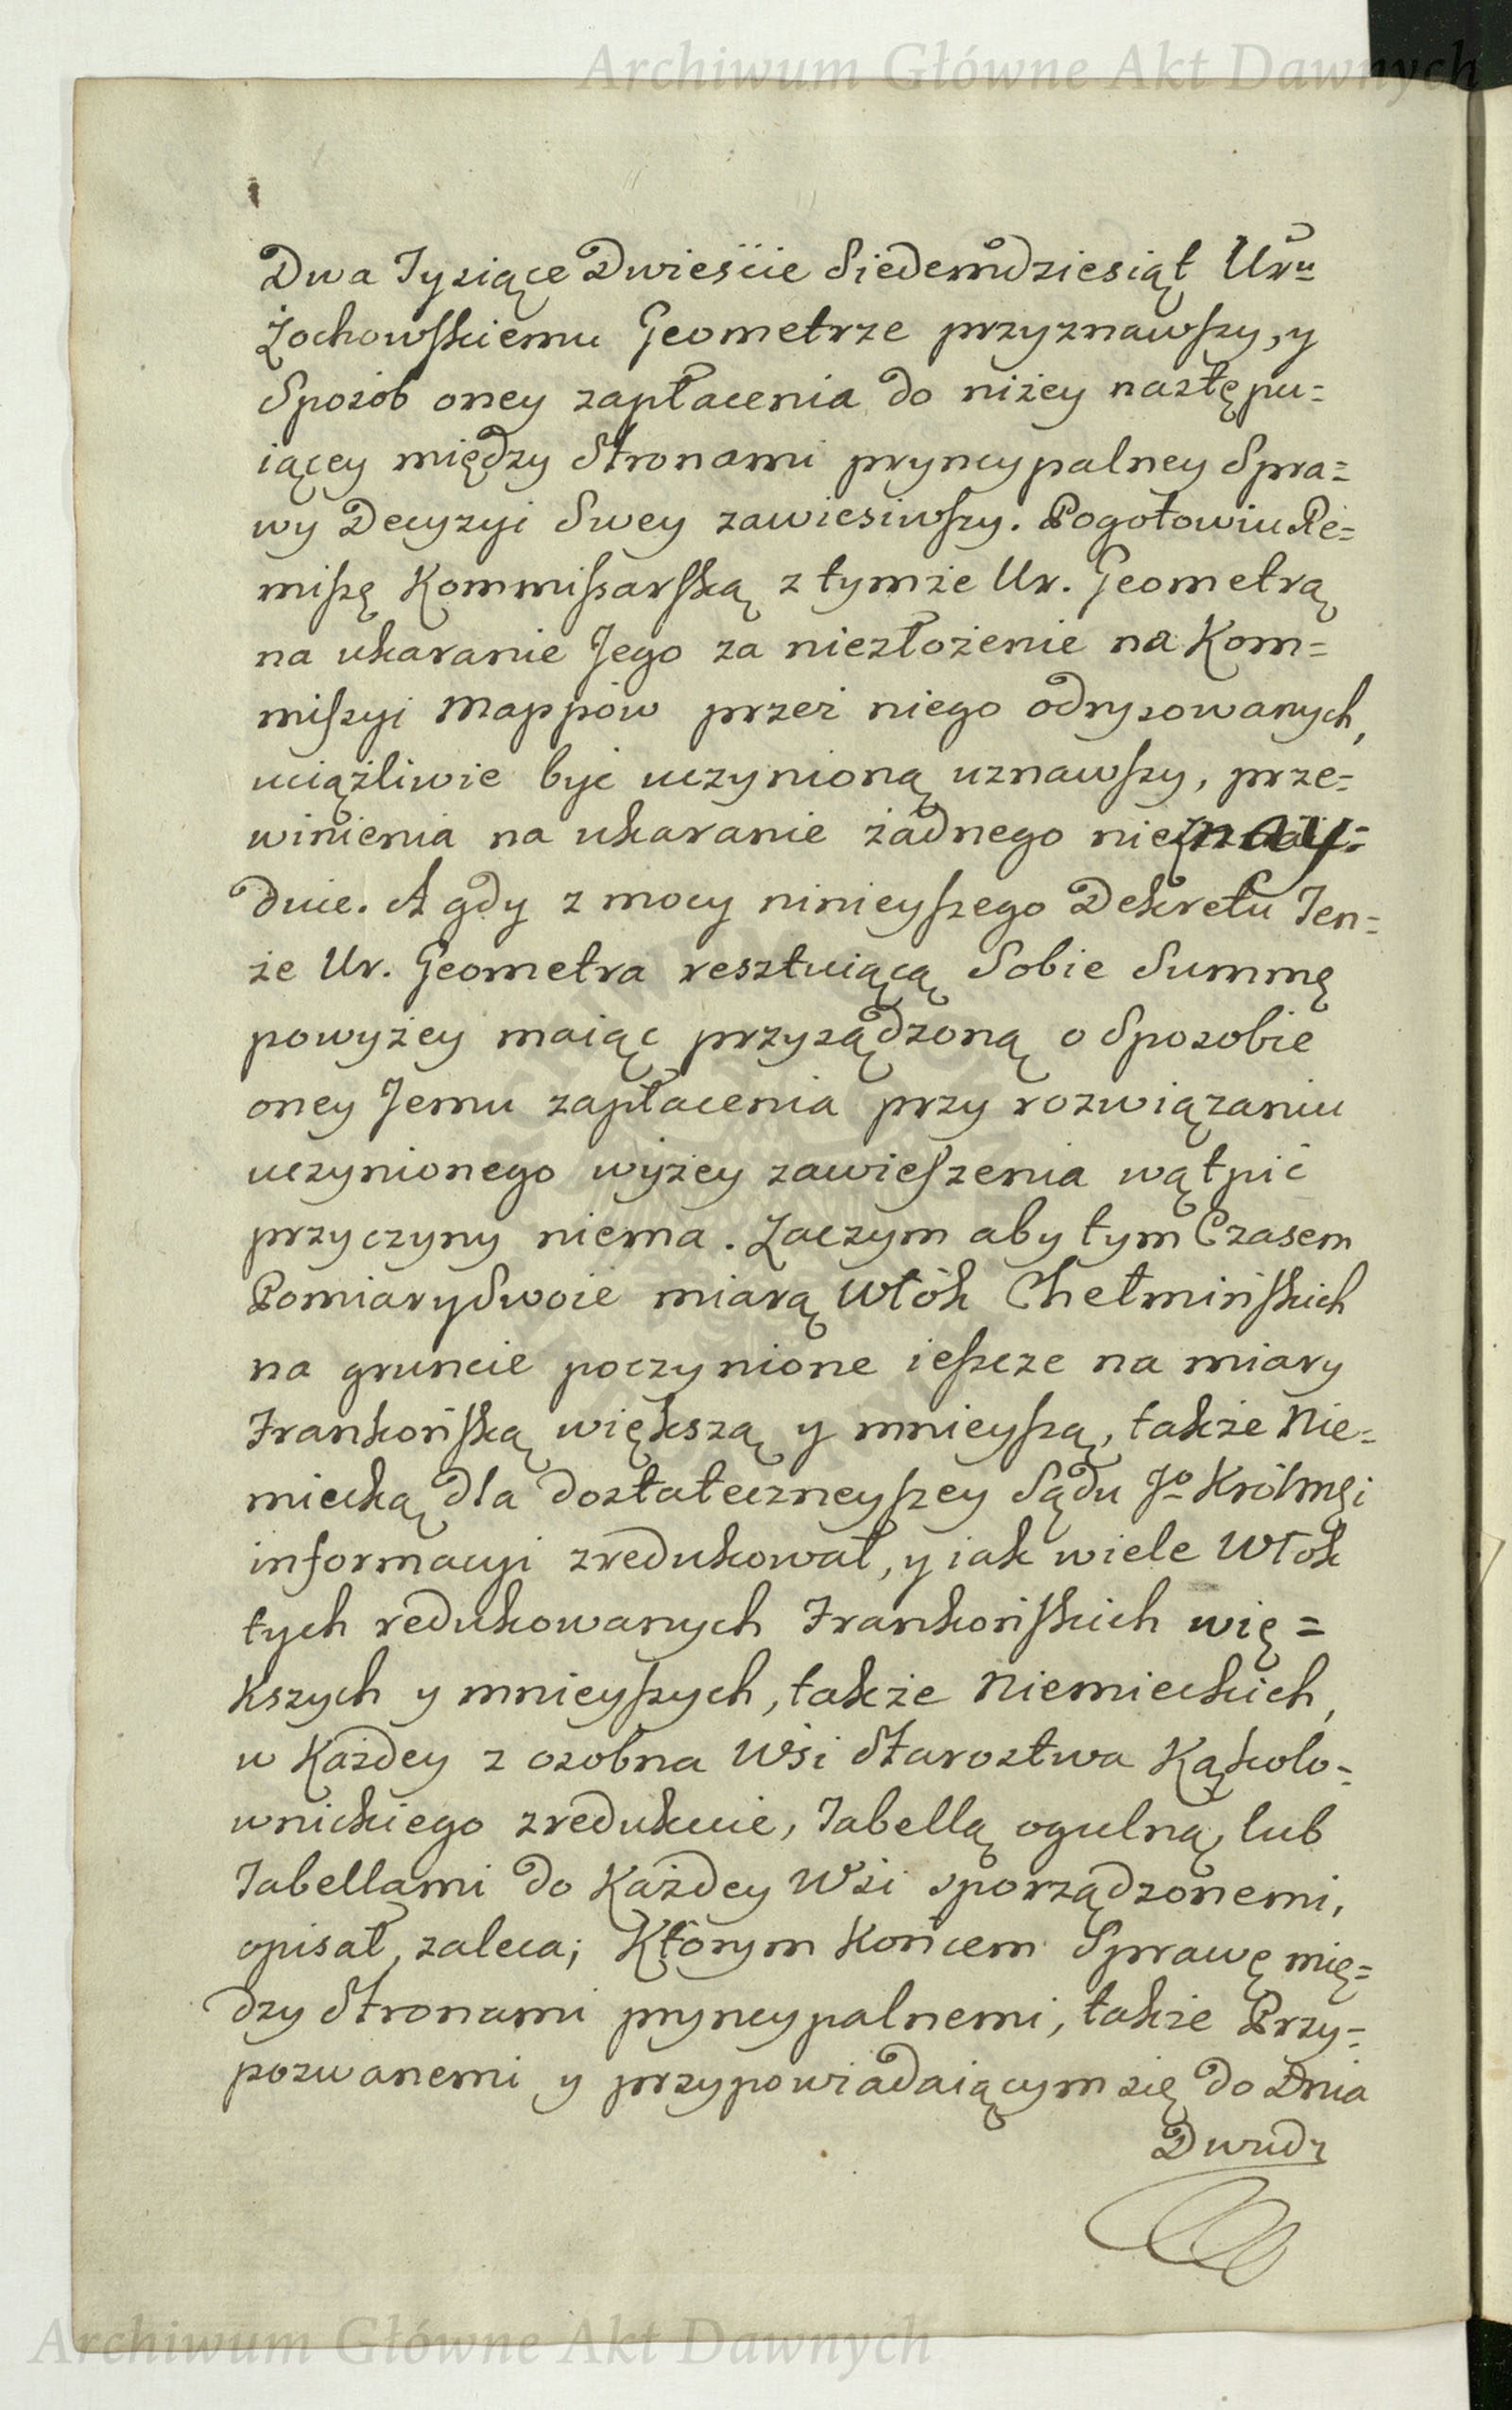 Archiwum Główne Akt Dawnych
Dwa Tysiące Dwieście Siedemdziesiąt Uru
Żochowskiemu Geometrze przyznawszy, y
Sposób oney zapłacenia do niżey następu=
iącey między Stronami pryncypalney Spra=
wy Decyzyi Swey zawiesiwszy. Pogotowiu Re=
miszę Kommissarską z tymże Ur. Geometrą
na ukaranie Jego za niezłożenie na Kom=
miszyi Mappów przez niego odrysowanych,
uciążliwie być uczynioną uznawszy, prze=
winienia na ukaranie żadnego nieznay=
duie. A gdy z mocy ninieyszego Dekretu Ten=
że Ur. Geometra resztuiącą Sobie Summę
powyżey maiąc przysądzoną o Sposobie
oney Jemu zapłacenia przy rozwiązaniu
uczynionego wyżey zawieszenia wątpić
przyczyny niema. Zaczym aby tym Czasem
Pomiary Swoie miarą Włók Chełmińskich
na gruncie poczynione ieszcze na miary
Frankońską większą y mnieyszą, także Nie=
miecką dla dostatecznieyszey Sądu Jo Królmęi
informacyi zredukował, y iak wiele Włók
tych redukowanych Frankońskich wię=
kszych y mnieyszych, także Niemieckich,
w Każdey z osobna Wsi Starostwa Kąkolo=
wnickiego zredukuie, Tabellą ogulną, lub
Tabellami do Każdey Wsi sporządzonemi,
opisał, zaleca; Którym Końcem Sprawę mię=
dzy Stronami pryncypalnemi, także Przy=
pozwanemi y przypowiadaiącym się do Dnia
Dwudz
Archiwum Główne Akt Dawnych